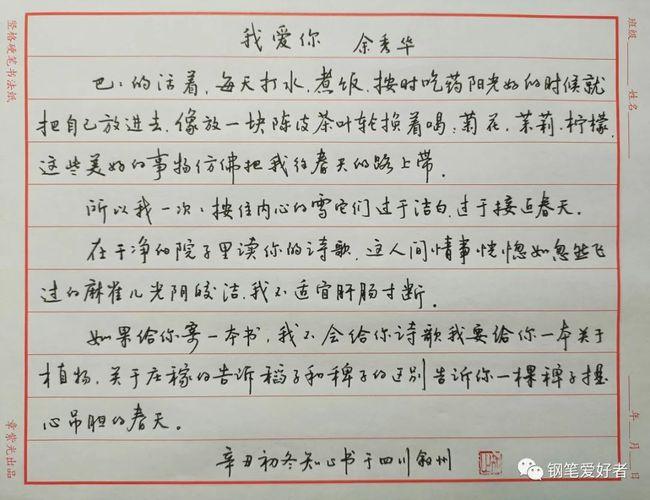 我爱你 余秀华
巴巴的活着,每天打水,煮饭,按时吃药阳光好的时候就
把自己放进去,像放一块陈皮茶叶轮换着喝:菊花,茉莉,柠檬,
这些美好的事物仿佛把我往春天的路上带。
所以我一次次按住内心的雪它们过于洁白过于接近春天。
在干净的院子里读你的诗歌,这人间情事恍惚如忽然飞
过的麻雀儿光阴皎洁,我不适宜肝肠寸断。
如果给你寄一本书,我不会给你诗歌我要给你一本关于
植物,关于庄稼的告诉稻子和稗子的区别告诉你一棵稗子提
心吊胆的春天。
辛丑初冬知心书于四川叙州
竖格硬笔书法纸
章紫光出品
班级
姓名
年 月 日
钢笔爱好者